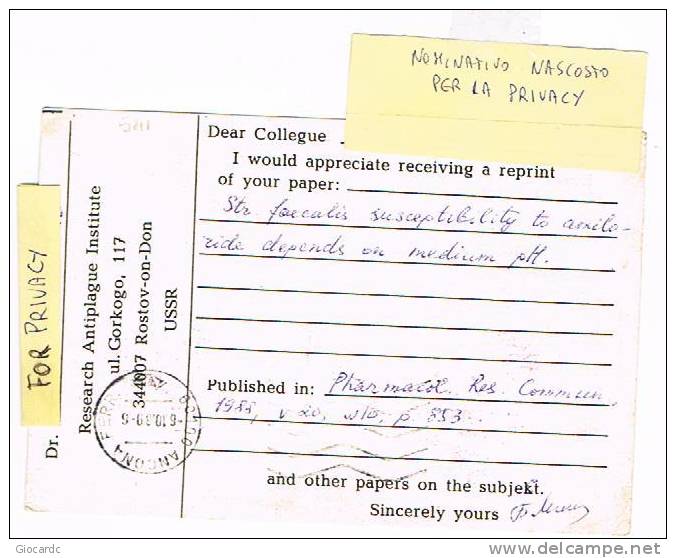 NOMINATIVO NASCOSTO
PER LA PRIVACY
FOR PRIVACY
Dr.
Research Antiplague Institute
ul. Gorkogo, 117
344007 Rostov-on-Don
USSR
Dear Collegue
I would appreciate receiving a reprint
of your paper:
Str. faecalis susceptibility to amilo-
ride depends on medium pH.
Published in: Pharmacol. Res. Commun.
1988, v 20, p 853
and other papers on the subjekt.
Sincerely yours
ANCONA
Giocardc
delcampe.net